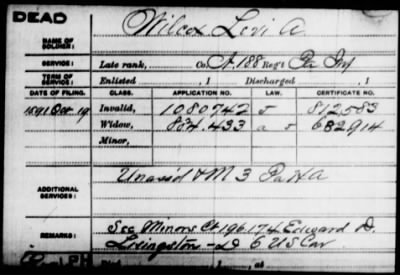 DEAD
NAME OF SOLDIER: Wilcox Levi A
SERVICE: Late rank, Co. A, 188 Reg't Pa Inf
TERM OF SERVICE: Enlisted , 1 Discharged , 1
DATE OF FILING. CLASS. APPLICATION NO. LAW. CERTIFICATE NO.
1891 Oct. 19 Invalid, 1080742 J 812,583
Widow, 834.433 a J 682914
Minor,
ADDITIONAL SERVICES: Unass'd & M 3 Pa H A
REMARKS: See Minors Ct 196.174 Edward D.
Livingston - D 6 US Cav